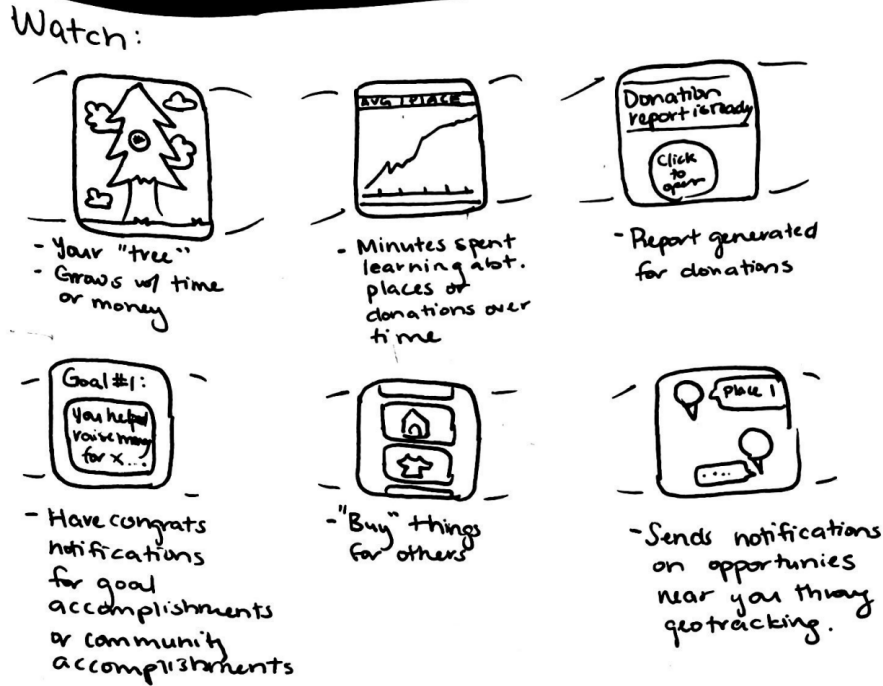 Watch:
- Your "tree"
- Grows w/ time
or money
AVG | PLACE
- Minutes spent
learning abt.
places or
donations over
time
Donation
report is ready
Click
to
open
- Report generated
for donations
Goal #1:
You helped
raise money
for x...
- Have congrats
notifications
for goal
accomplishments
or community
accomplishments
- "Buy" things
for others
Place 1
....
- Sends notifications
on opportunies
near you throug
geotracking.